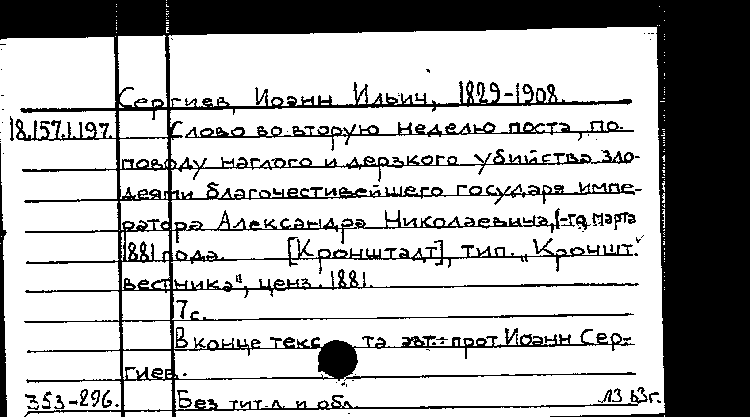 Сергиев, Иоанн Ильич, 1829-1908.
18.157.1.197. Слово во вторую неделю поста, по
поводу наглого и дерзкого убийства зло-
деями благочестивейшего государя импе-
ратора Александра Николаевича, 1-го марта
1881 года. [Кронштадт], тип. „Кроншт.
вестника", ценз. 1881.
7 с.
В конце текста авт.: прот. Иоанн Сер-
гиев.
353-296. Без тит. л. и обл.